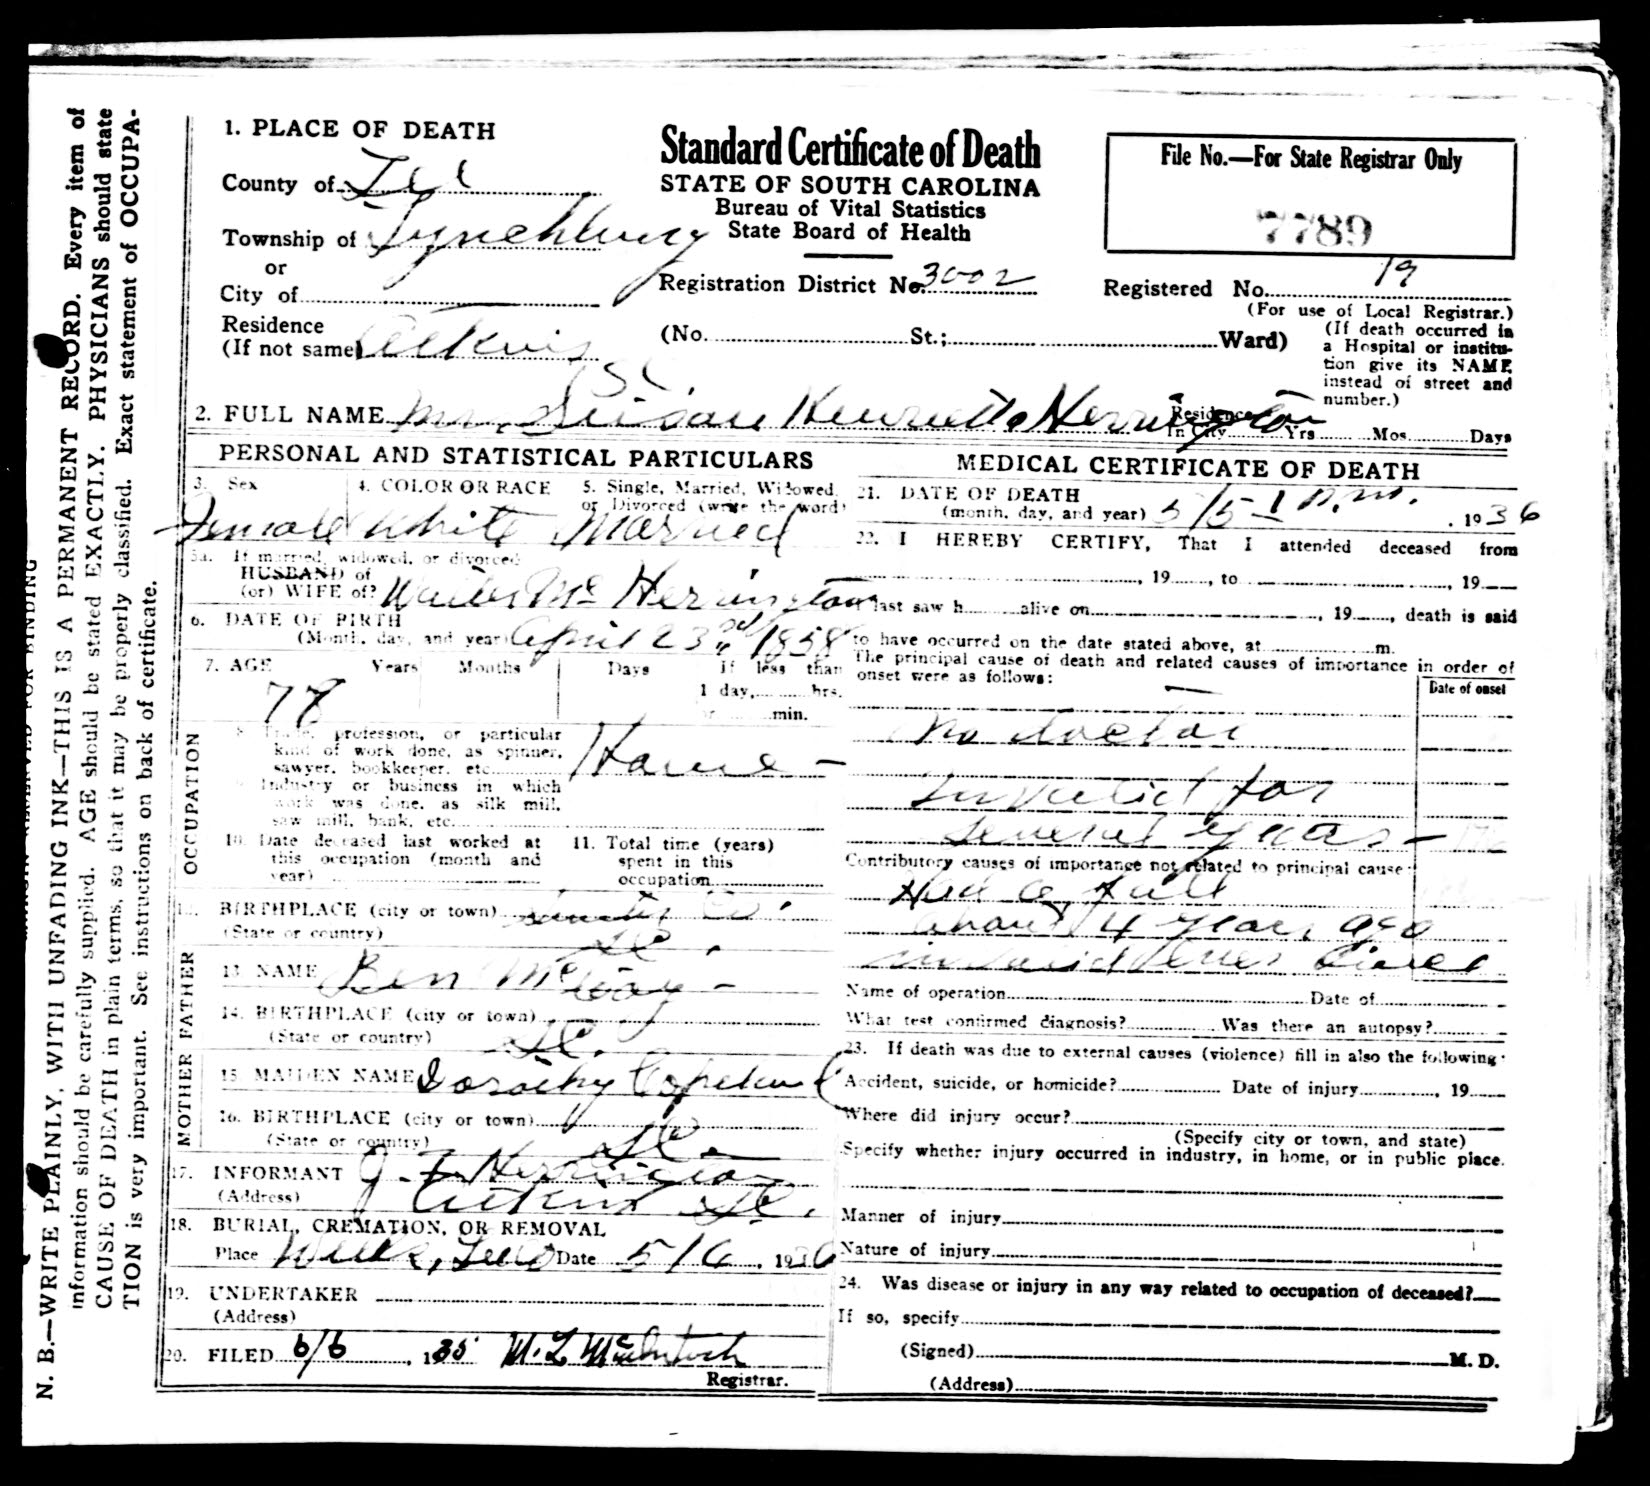 N. B.—WRITE PLAINLY, WITH UNFADING INK—THIS IS A PERMANENT RECORD. Every item of
information should be carefully supplied. AGE should be stated EXACTLY. PHYSICIANS should state
CAUSE OF DEATH in plain terms, so that it may be properly classified. Exact statement of OCCUPA-
TION is very important. See instructions on back of certificate.
RESERVED FOR BINDING
1. PLACE OF DEATH
County of Lee
Township of Lynchburg
or
City of
Residence
(If not same) Atkins
S C.
Standard Certificate of Death
STATE OF SOUTH CAROLINA
Bureau of Vital Statistics
State Board of Health
Registration District No. 3002
(No. St.; Ward)
File No.—For State Registrar Only
7789
Registered No. 19
(For use of Local Registrar.)
(If death occurred in
a Hospital or institu-
tion give its NAME
instead of street and
number.)
2. FULL NAME Mrs. Susan Henrietta Herrington
Residence
In City Yrs Mos. Days
PERSONAL AND STATISTICAL PARTICULARS
3. Sex 4. COLOR OR RACE 5. Single, Married, Widowed,
or Divorced (write the word)
Female White Married
5a. If married, widowed, or divorced
HUSBAND of
(or) WIFE of? McHerrington
6. DATE OF BIRTH
(Month, day, and year) April 23rd, 1858
7. AGE Years Months Days If less than
1 day, hrs.
or min.
78
OCCUPATION
8. Trade, profession, or particular
kind of work done, as spinner,
sawyer, bookkeeper, etc. Home –
9. Industry or business in which
work was done, as silk mill,
saw mill, bank, etc.
10. Date deceased last worked at
this occupation (month and
year)
11. Total time (years)
spent in this
occupation
12. BIRTHPLACE (city or town) Sumter Co.
(State or country) SC.
FATHER
13. NAME Ben McCoy –
14. BIRTHPLACE (city or town)
(State or country) SC.
MOTHER
15. MAIDEN NAME Dorothy Copeland
16. BIRTHPLACE (city or town)
(State or country) SC –
17. INFORMANT J. F. Herrington
(Address) Atkins SC.
18. BURIAL, CREMATION, OR REMOVAL
Place Date 5/6, 1936
19. UNDERTAKER
(Address)
20. FILED 6/6, 1935 M. L. McIntosh
Registrar.
MEDICAL CERTIFICATE OF DEATH
21. DATE OF DEATH
(month, day, and year) 5/5 , 1936
22. I HEREBY CERTIFY, That I attended deceased from
, 19 , to , 19
I last saw h alive on , 19 , death is said
to have occurred on the date stated above, at m.
The principal cause of death and related causes of importance in order of
onset were as follows:
Date of onset
No doctor
Invalid for
several years –
Contributory causes of importance not related to principal cause:
Had a fall
about 4 years ago
invalid ever since
Name of operation Date of
What test confirmed diagnosis? Was there an autopsy?
23. If death was due to external causes (violence) fill in also the following:
Accident, suicide, or homicide? Date of injury , 19
Where did injury occur?
(Specify city or town, and state)
Specify whether injury occurred in industry, in home, or in public place.
Manner of injury
Nature of injury
24. Was disease or injury in any way related to occupation of deceased?
If so, specify
(Signed) M. D.
(Address)